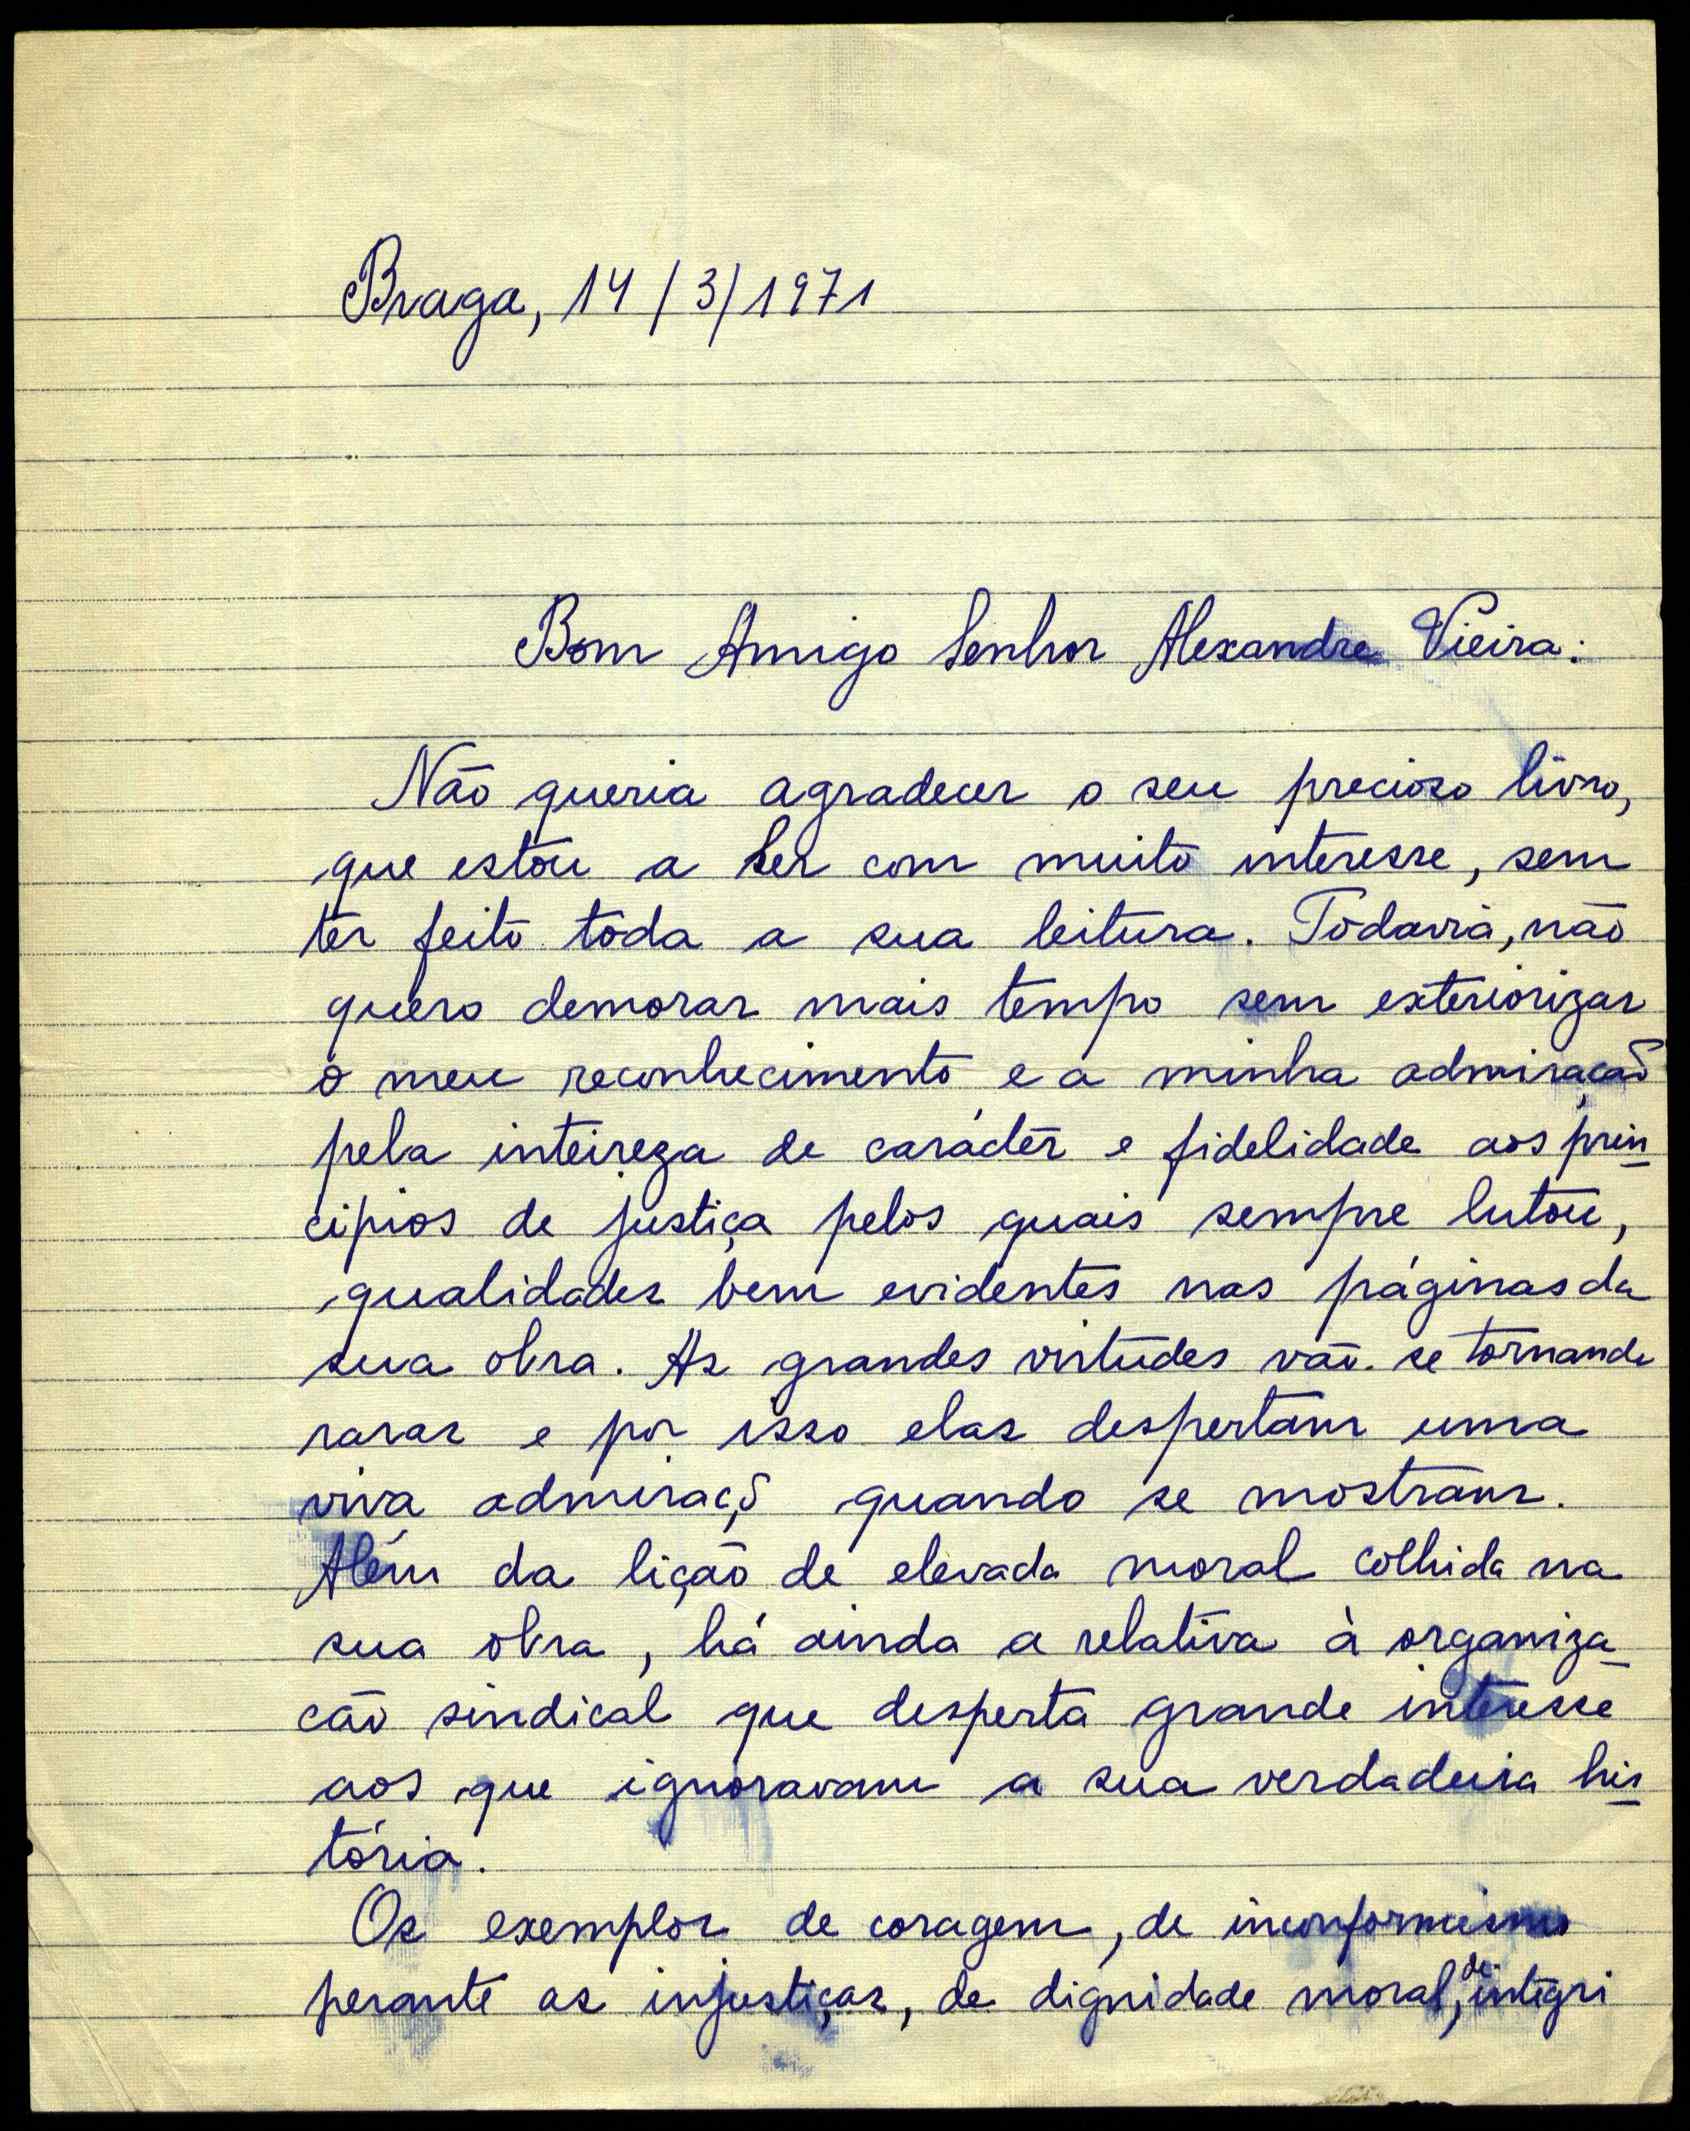 Braga, 14/3/1971
Bom Amigo Senhor Alexandre Vieira:
Não queria agradecer o seu precioso livro,
que estou a ler com muito interesse, sem
ter feito toda a sua leitura. Todavia, não
quero demorar mais tempo sem exteriorizar
o meu reconhecimento e a minha admiração
pela inteireza de carácter e fidelidade aos prin
cipios de justiça pelos quais sempre lutou,
qualidades bem evidentes nas páginas da
sua obra. As grandes virtudes vão-se tornando
raras e por isso elas despertam uma
viva admiração quando se mostram.
Além da lição de elevada moral colhida na
sua obra, há ainda a relativa à organiza
cão sindical que desperta grande interesse
aos que ignoravam a sua verdadeira his
tória.
Os exemplos de coragem, de inconformismo
perante as injustiças, de dignidade moral, de integri